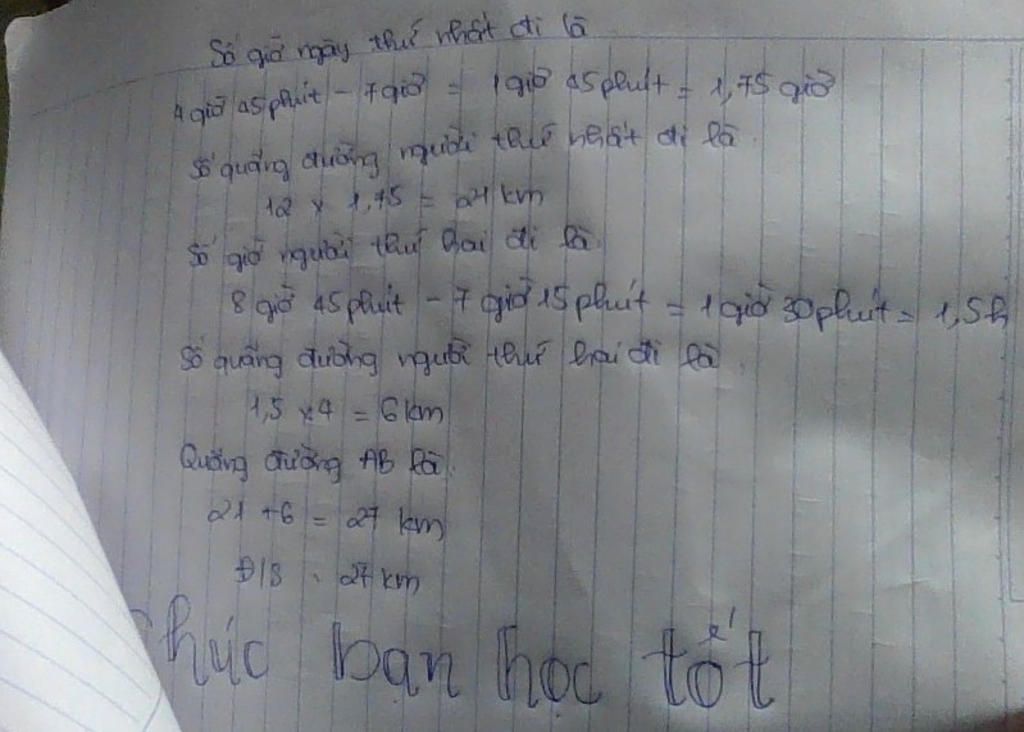 Số giờ ngày thứ nhất đi là
4 giờ 45 phút - 7 giờ = 1 giờ 45 phút = 1,75 giờ
Số quãng đường người thứ nhất đi là.
12 x 1,75 = 21 km
Số giờ người thứ hai đi là.
8 giờ 45 phút - 7 giờ 15 phút = 1 giờ 30 phút = 1,5 h
Số quãng đường người thứ hai đi là.
1,5 x 4 = 6 km
Quãng đường AB là.
21 + 6 = 27 km
Đ/S : 27 km
Chúc bạn học tốt